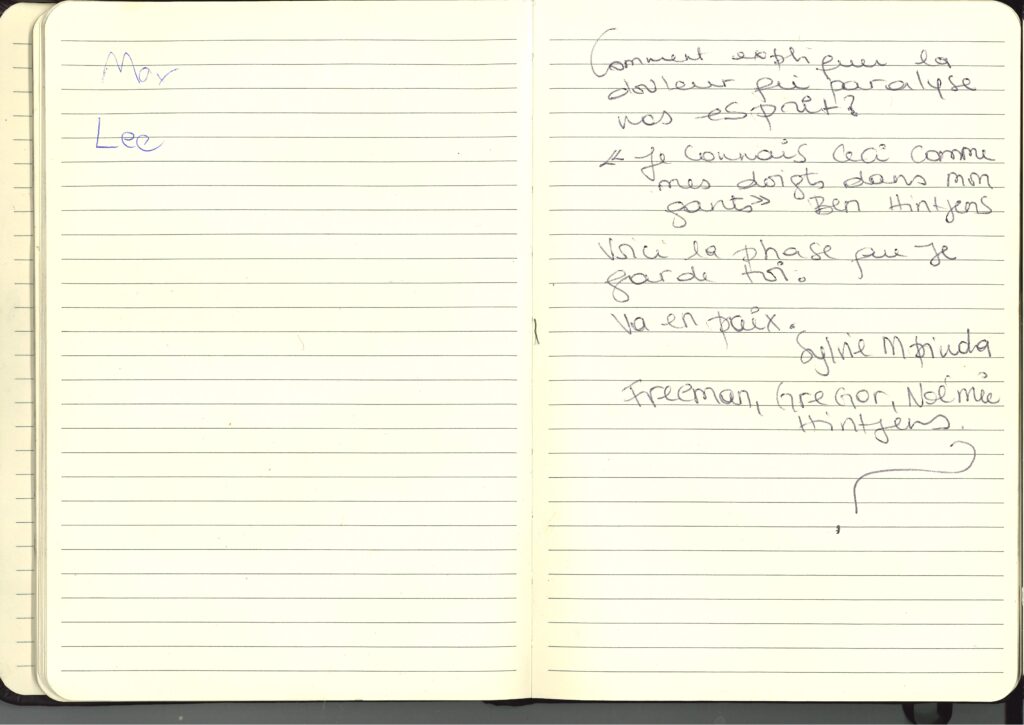 Mor
Lee
Comment expliquer la
douleur qui paralyse
nos esprit?
« Je connais ceci comme
mes doigts dans mon
gants» Ben Hintjens
Voici la phase que Je
garde toi.
Va en paix.
Sylvie Mpinda
Freeman, Gregor, Noémie
Hintjens.